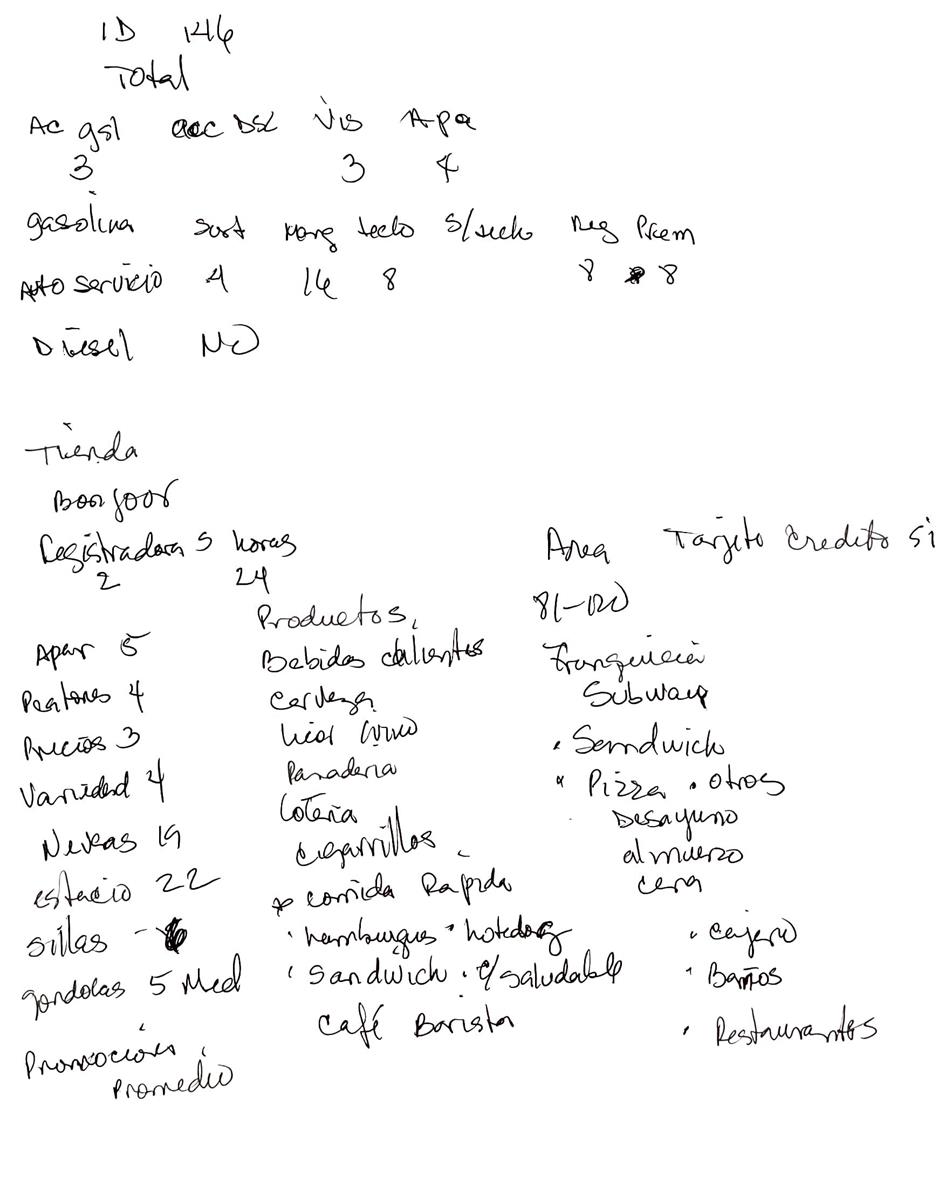 ID 146
Total
Ac gsl acc DSL Vis Apa
3 3 4
gasolina Surt Mang techo S/techo Reg Prem
Auto servicio 4 16 8 8 8
Diesel NO
Tienda
Bonjour
Registradora S horas Area Tarjeta Credito Si
2 24
81-120
Productos,
Apar 5 Bebidas calientes Franquicia
Peatones 4 Cerveza Subway
Precios 3 Licor vino • Sandwich
Variedad 4 Panaderia • Pizza • otros
Loteria Desayuno
Neveras 19 Cigarrillos almuerzo
estacio 22 * comida Rapida cena
sillas - • hamburgues • hotdog • cajero
gondolas 5 Med • Sandwich • c/saludable • Baños
Café Barista • Restaurantes
Promocion,
Promedio